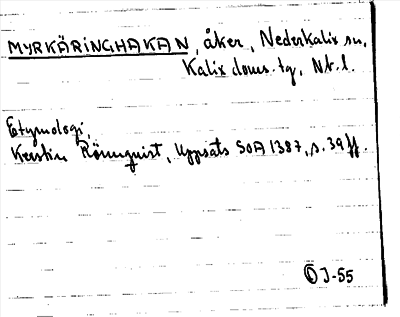 MYRKÄRINGHAKAN, åker, Nederkalix sn,
Kalix doms. tg, Nb. l.
Etymologi,
Kerstin Rönnquist, Uppsats SOA 1387, s. 39 ff.
OJ-55